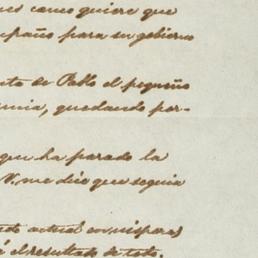 como quiere que
para su gobierno
de Pablo el pequeño
quedando por-
que ha parado la
V. me dice que seguia
actual en visperas
el resultado de todo.